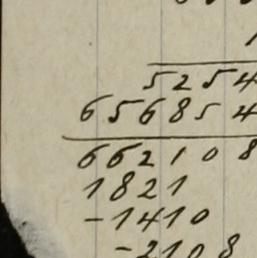 5254
656854
662108
1821
-1410
-2108